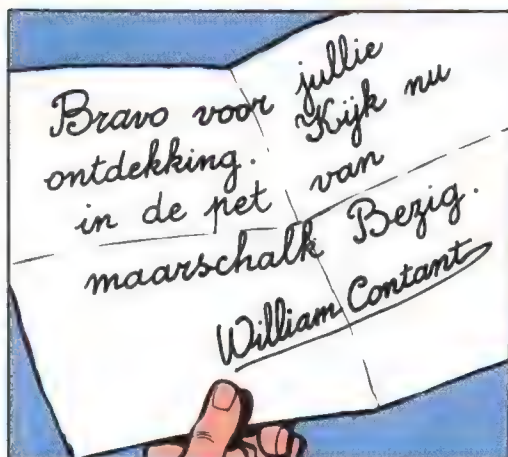 Bravo voor jullie
ontdekking. Kijk nu
in de pet van
maarschalk Bezig.
William Contant